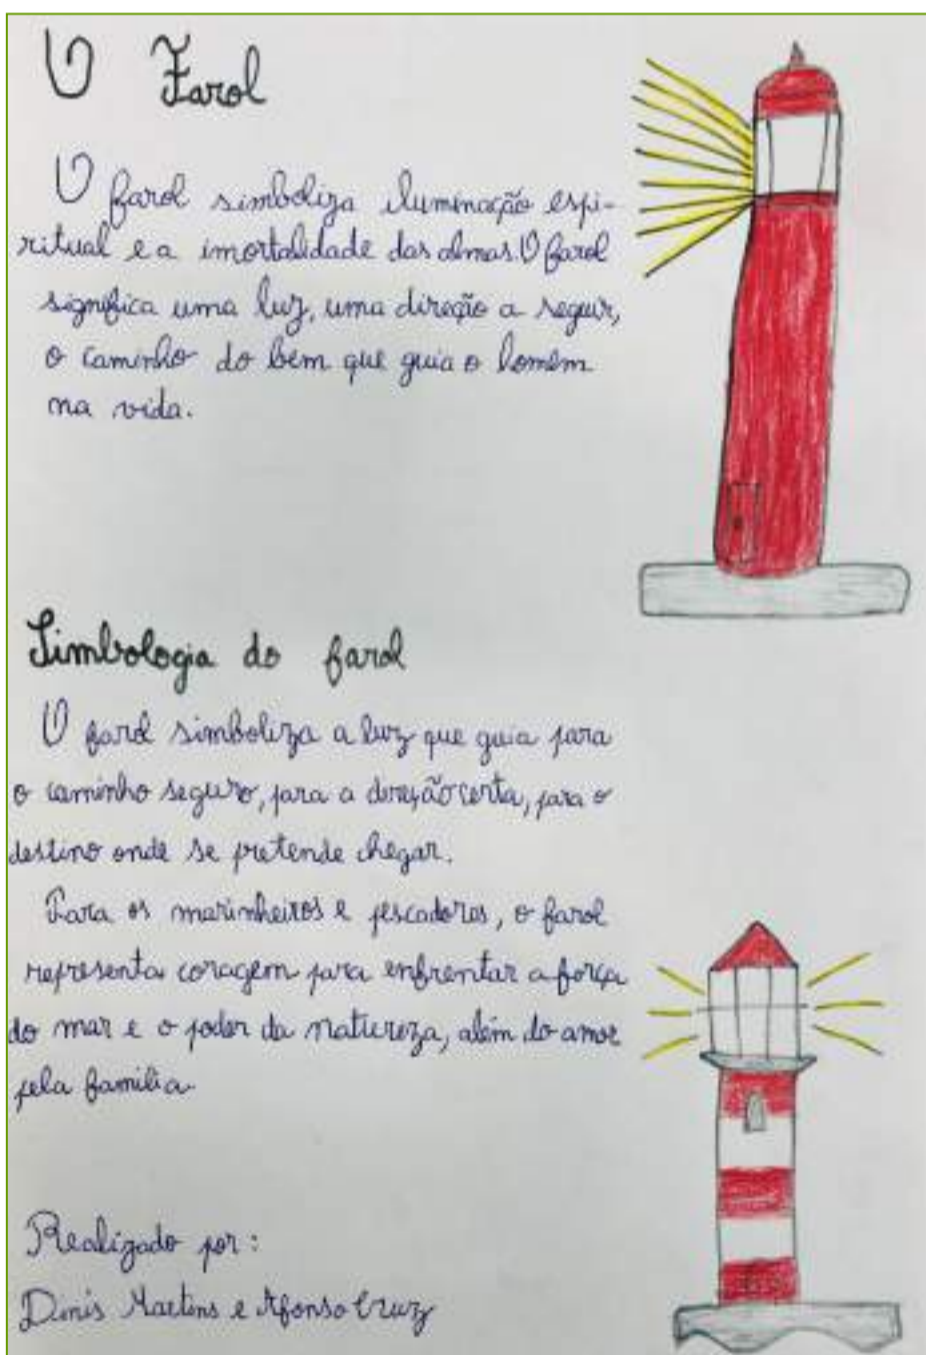 O Farol
O farol simboliza iluminação espi-
ritual e a imortalidade das almas. O farol
significa uma luz, uma direção a seguir,
o caminho do bem que guia o homem
na vida.
Simbologia do farol
O farol simboliza a luz que guia para
o caminho seguro, para a direção certa, para o
destino onde se pretende chegar.
Para os marinheiros e pescadores, o farol
representa coragem para enfrentar a força
do mar e o poder da natureza, além do amor
pela família.
Realizado por:
Dinis Martins e Afonso Cruz